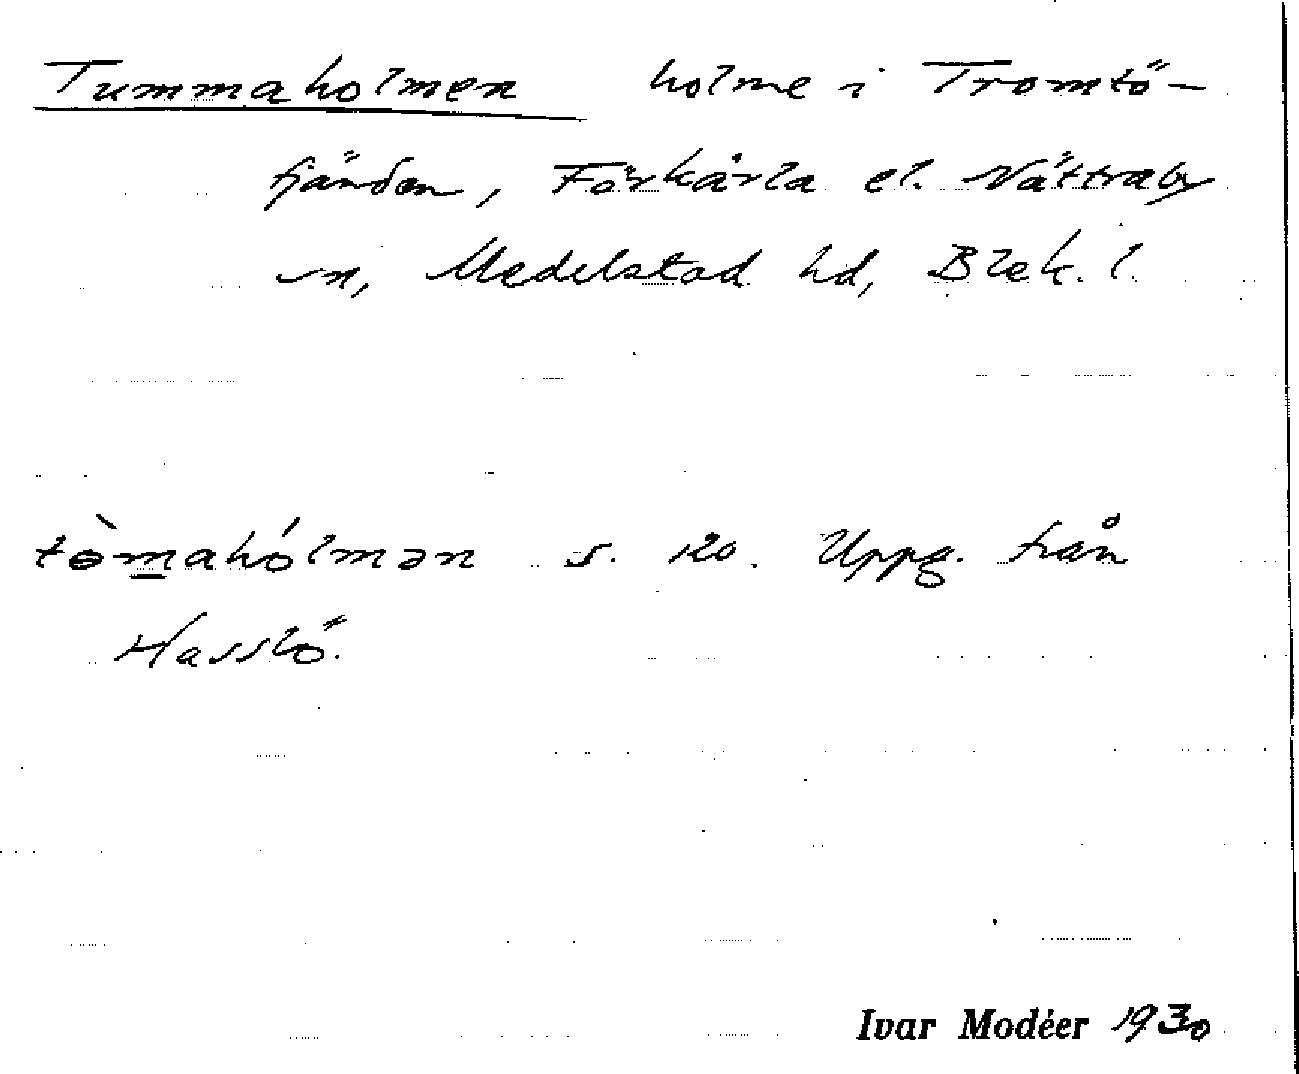 Tummaholmen holme i Tromtö-
fjärden, Förkärla el. Nättraby
sn, Medelstad hd, Blek. l.
tòmahólmən s. 120. Uppg. från
Hasslö.
Ivar Modéer 1930